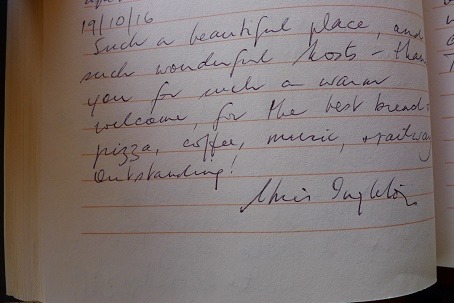 19/10/16
Such a beautiful place, and
such wonderful hosts - than
you for such a warm
welcome, for the best bread,
pizza, coffee, music, + railway
Outstanding!
Chris Ingleton